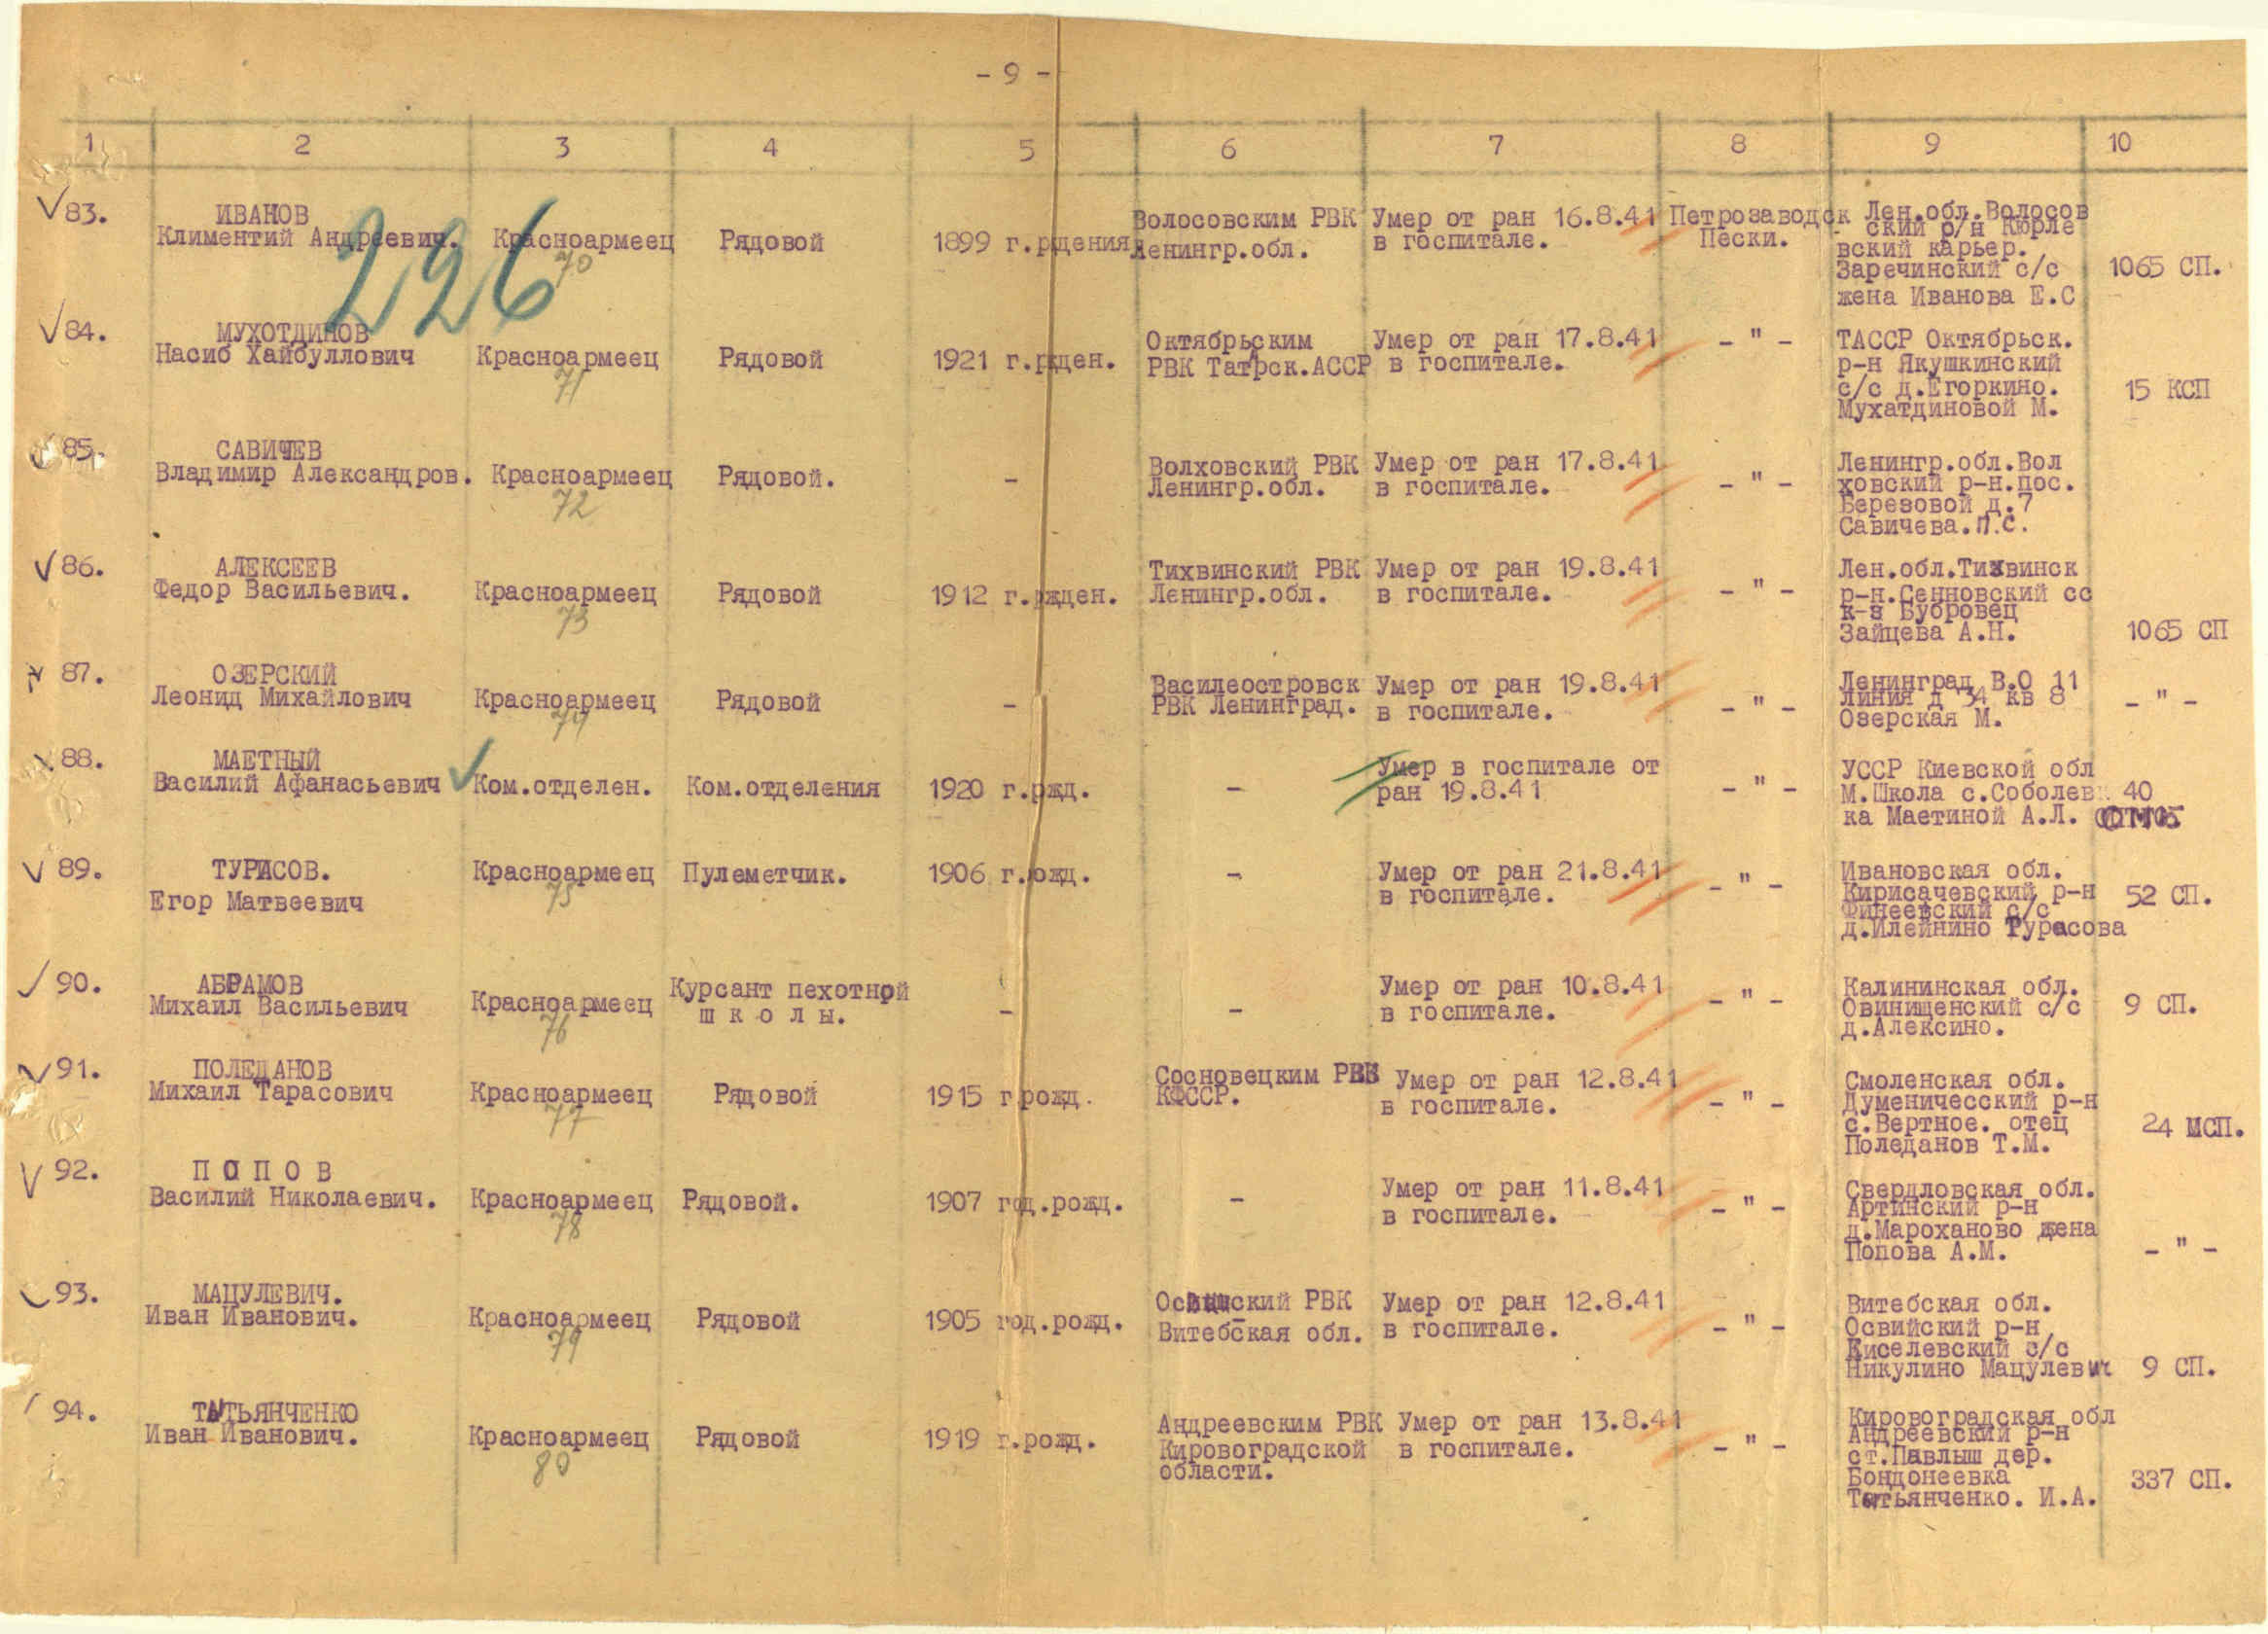 - 9 -
1 2 3 4 5 6 7 8 9 10
226
83.
ИВАНОВ
Климентий Андреевич.
Красноармеец
70
Рядовой
1899 г.рдения
Волосовским РВК
Ленингр.обл.
Умер от ран 16.8.41
в госпитале.
Петрозаводск
Пески.
Лен.обл.Волосов
ский р/н Кюрле
вский карьер.
Заречинский с/с
жена Иванова Е.С
1065 СП.
84.
МУХОТДИНОВ
Насиб Хайбуллович
Красноармеец
71
Рядовой
1921 г.ржден.
Октябрьским
РВК Татрск.АССР
Умер от ран 17.8.41
в госпитале.
- " -
ТАССР Октябрьск.
р-н Якушкинский
с/с д.Егоркино.
Мухатдиновой М.
15 КСП
85.
САВИЧЕВ
Владимир Александров.
Красноармеец
72
Рядовой.
-
Волховский РВК
Ленингр.обл.
Умер от ран 17.8.41
в госпитале.
- " -
Ленингр.обл.Вол
ховский р-н.пос.
Березовой д.7
Савичева.П.С.
86.
АЛЕКСЕЕВ
Федор Васильевич.
Красноармеец
73
Рядовой
1912 г.ржден.
Тихвинский РВК
Ленингр.обл.
Умер от ран 19.8.41
в госпитале.
- " -
Лен.обл.Тихвинск
р-н.Сенновский сс
к-з Бубровец
Зайцева А.Н.
1065 СП
87.
ОЗЕРСКИЙ
Леонид Михайлович
Красноармеец
74
Рядовой
-
Василеостровск
РВК Ленинград.
Умер от ран 19.8.41
в госпитале.
- " -
Ленинград В.О 11
линия д 34 кв 8
Озерская М.
- " -
88.
МАЕТНЫЙ
Василий Афанасьевич
Ком.отделен.
Ком.отделения
1920 г.ржд.
-
Умер в госпитале от
ран 19.8.41
- " -
УССР Киевской обл
М.Школа с.Соболев
ка Маетиной А.Л.
40
89.
ТУРИСОВ.
Егор Матвеевич
Красноармеец
75
Пулеметчик.
1906 г.рожд.
-
Умер от ран 21.8.41
в госпитале.
- " -
Ивановская обл.
Кирисачевский р-н
Финеевский с/с
д.Илейнино Турасова
52 СП.
90.
АБРАМОВ
Михаил Васильевич
Красноармеец
76
Курсант пехотной
ш к о л ы.
-
-
Умер от ран 10.8.41
в госпитале.
- " -
Калининская обл.
Овинищенский с/с
д.Алексино.
9 СП.
91.
ПОЛЕДАНОВ
Михаил Тарасович
Красноармеец
77
Рядовой
1915 г рожд.
Сосновецким РВК
КФССР.
Умер от ран 12.8.41
в госпитале.
- " -
Смоленская обл.
Думеничесский р-н
с.Вертное. отец
Поледанов Т.М.
24 МСП.
92.
П О П О В
Василий Николаевич.
Красноармеец
78
Рядовой.
1907 год.рожд.
-
Умер от ран 11.8.41
в госпитале.
- " -
Свердловская обл.
Артинский р-н
д.Мароханово жена
Попова А.М.
- " -
93.
МАЦУЛЕВИЧ.
Иван Иванович.
Красноармеец
79
Рядовой
1905 год.рожд.
РВК
Витебская обл.
Умер от ран 12.8.41
в госпитале.
- " -
Витебская обл.
Освийский р-н
Киселевский с/с
Никулино Мацулевич
9 СП.
94.
ТЫТЬЯНЧЕНКО
Иван Иванович.
Красноармеец
80
Рядовой
1919 г.рожд.
Андреевским РВК
Кировоградской
области.
Умер от ран 13.8.41
в госпитале.
- " -
Кировоградская обл
Андреевский р-н
ст.Павлыш дер.
Бондонеевка
Тытьянченко. И.А.
337 СП.